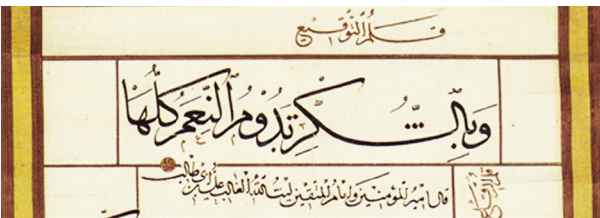 قلم التوقيع
وبالشكر تدوم النعم كلها
قال أمير المؤمنين وإمام المتقين ليث الله الغالب علي بن أبي طالب